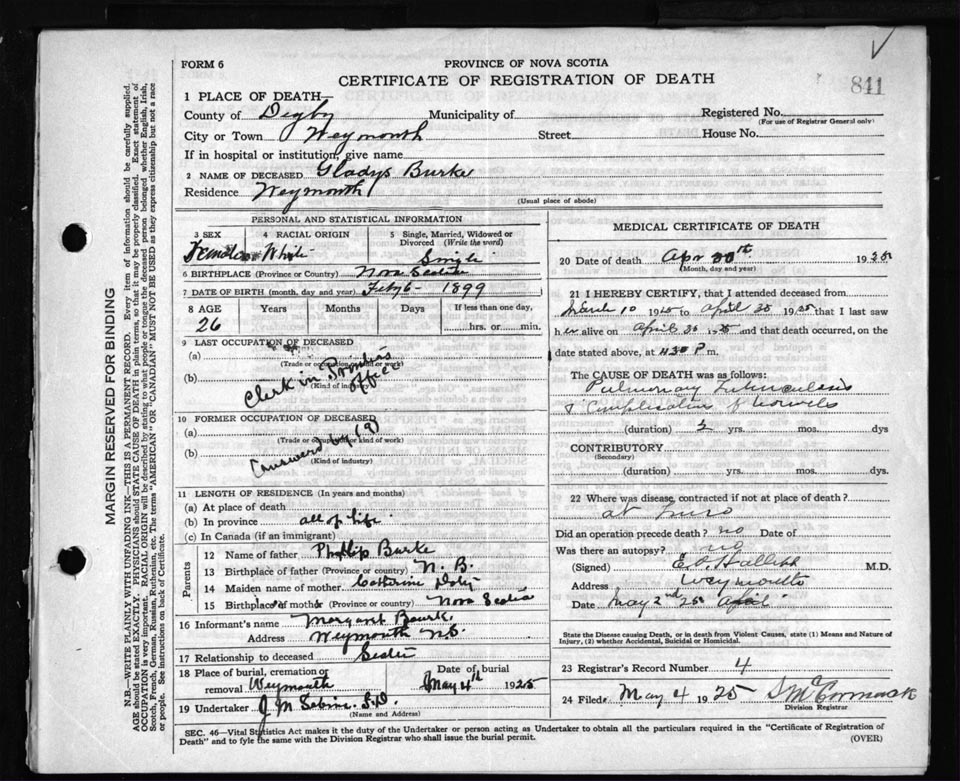 841
FORM 6
PROVINCE OF NOVA SCOTIA
CERTIFICATE OF REGISTRATION OF DEATH
1 PLACE OF DEATH—
County of Digby Municipality of Registered No.
(For use of Registrar General only)
City or Town Weymouth Street House No.
If in hospital or institution, give name
2 NAME OF DECEASED Gladys Burke
Residence Weymouth
(Usual place of abode)
PERSONAL AND STATISTICAL INFORMATION
3 SEX 4 RACIAL ORIGIN 5 Single, Married, Widowed or
Divorced (Write the word)
Female White Single
6 BIRTHPLACE (Province or Country) Nova Scotia
7 DATE OF BIRTH (month, day and year) 1899
8 AGE Years Months Days If less than one day,
26 hrs. or min.
9 LAST OCCUPATION OF DECEASED
(a)
(Trade or occupation or kind of work)
(b) Clerk in Printers office
(Kind of industry)
10 FORMER OCCUPATION OF DECEASED
(a)
(Trade or occupation or kind of work)
(b) Answered by (9)
(Kind of industry)
11 LENGTH OF RESIDENCE (In years and months)
(a) At place of death
(b) In province all of life
(c) In Canada (if an immigrant)
Parents
12 Name of father Phillip Burke
13 Birthplace of father (Province or country) N. B.
14 Maiden name of mother Catherine
15 Birthplace of mother (Province or country) Nova Scotia
16 Informant's name Margaret
Address Weymouth N.S.
17 Relationship to deceased Sister
18 Place of burial, cremation or Date of burial
removal Weymouth May 4th 1925
19 Undertaker J M
(Name and Address)
MEDICAL CERTIFICATE OF DEATH
20 Date of death Apr 30th 1925
(Month, day and year)
21 I HEREBY CERTIFY, that I attended deceased from
March 10 1925 to April 1925 that I last saw
her alive on April 1925 and that death occurred, on the
date stated above, at 4.30 P m.
The CAUSE OF DEATH was as follows:
Pulmonary Tuberculosis
& Complication of bowels
(duration) 2 yrs. mos. dys
CONTRIBUTORY
(Secondary)
(duration) yrs. mos. dys.
22 Where was disease, contracted if not at place of death?
at Truro
Did an operation precede death? no Date of
Was there an autopsy? no
(Signed) M.D.
Address Weymouth
Date May 2nd 25
State the Disease causing Death, or in death from Violent Causes, state (1) Means and Nature of
Injury, (2) whether Accidental, Suicidal or Homicidal.
23 Registrar's Record Number 4
24 Filed May 4 1925 S McCormack
Division Registrar
SEC. 46—Vital Statistics Act makes it duty of the Undertaker or person acting as Undertaker to obtain all the particulars required in the "Certificate of Registration of
Death" and to fyle the same with the Division Registrar who shall issue the burial permit.
(OVER)
MARGIN RESERVED FOR BINDING
N.B.—WRITE PLAINLY WITH UNFADING INK—THIS IS A PERMANENT RECORD. Every item of information should be carefully supplied.
AGE should be stated EXACTLY. PHYSICIANS should STATE CAUSE OF DEATH in plain terms, so that it may be properly classified. Exact statement of
OCCUPATION is very important. RACIAL ORIGIN will be described by stating to what people or tongue the deceased person belonged whether English, Irish,
Scotch, French, German, Russian, Ruthenian, etc. The terms "AMERICAN" OR "CANADIAN" MUST NOT BE USED as they express citizenship but not a race
or people. See instructions on back of Certificate.